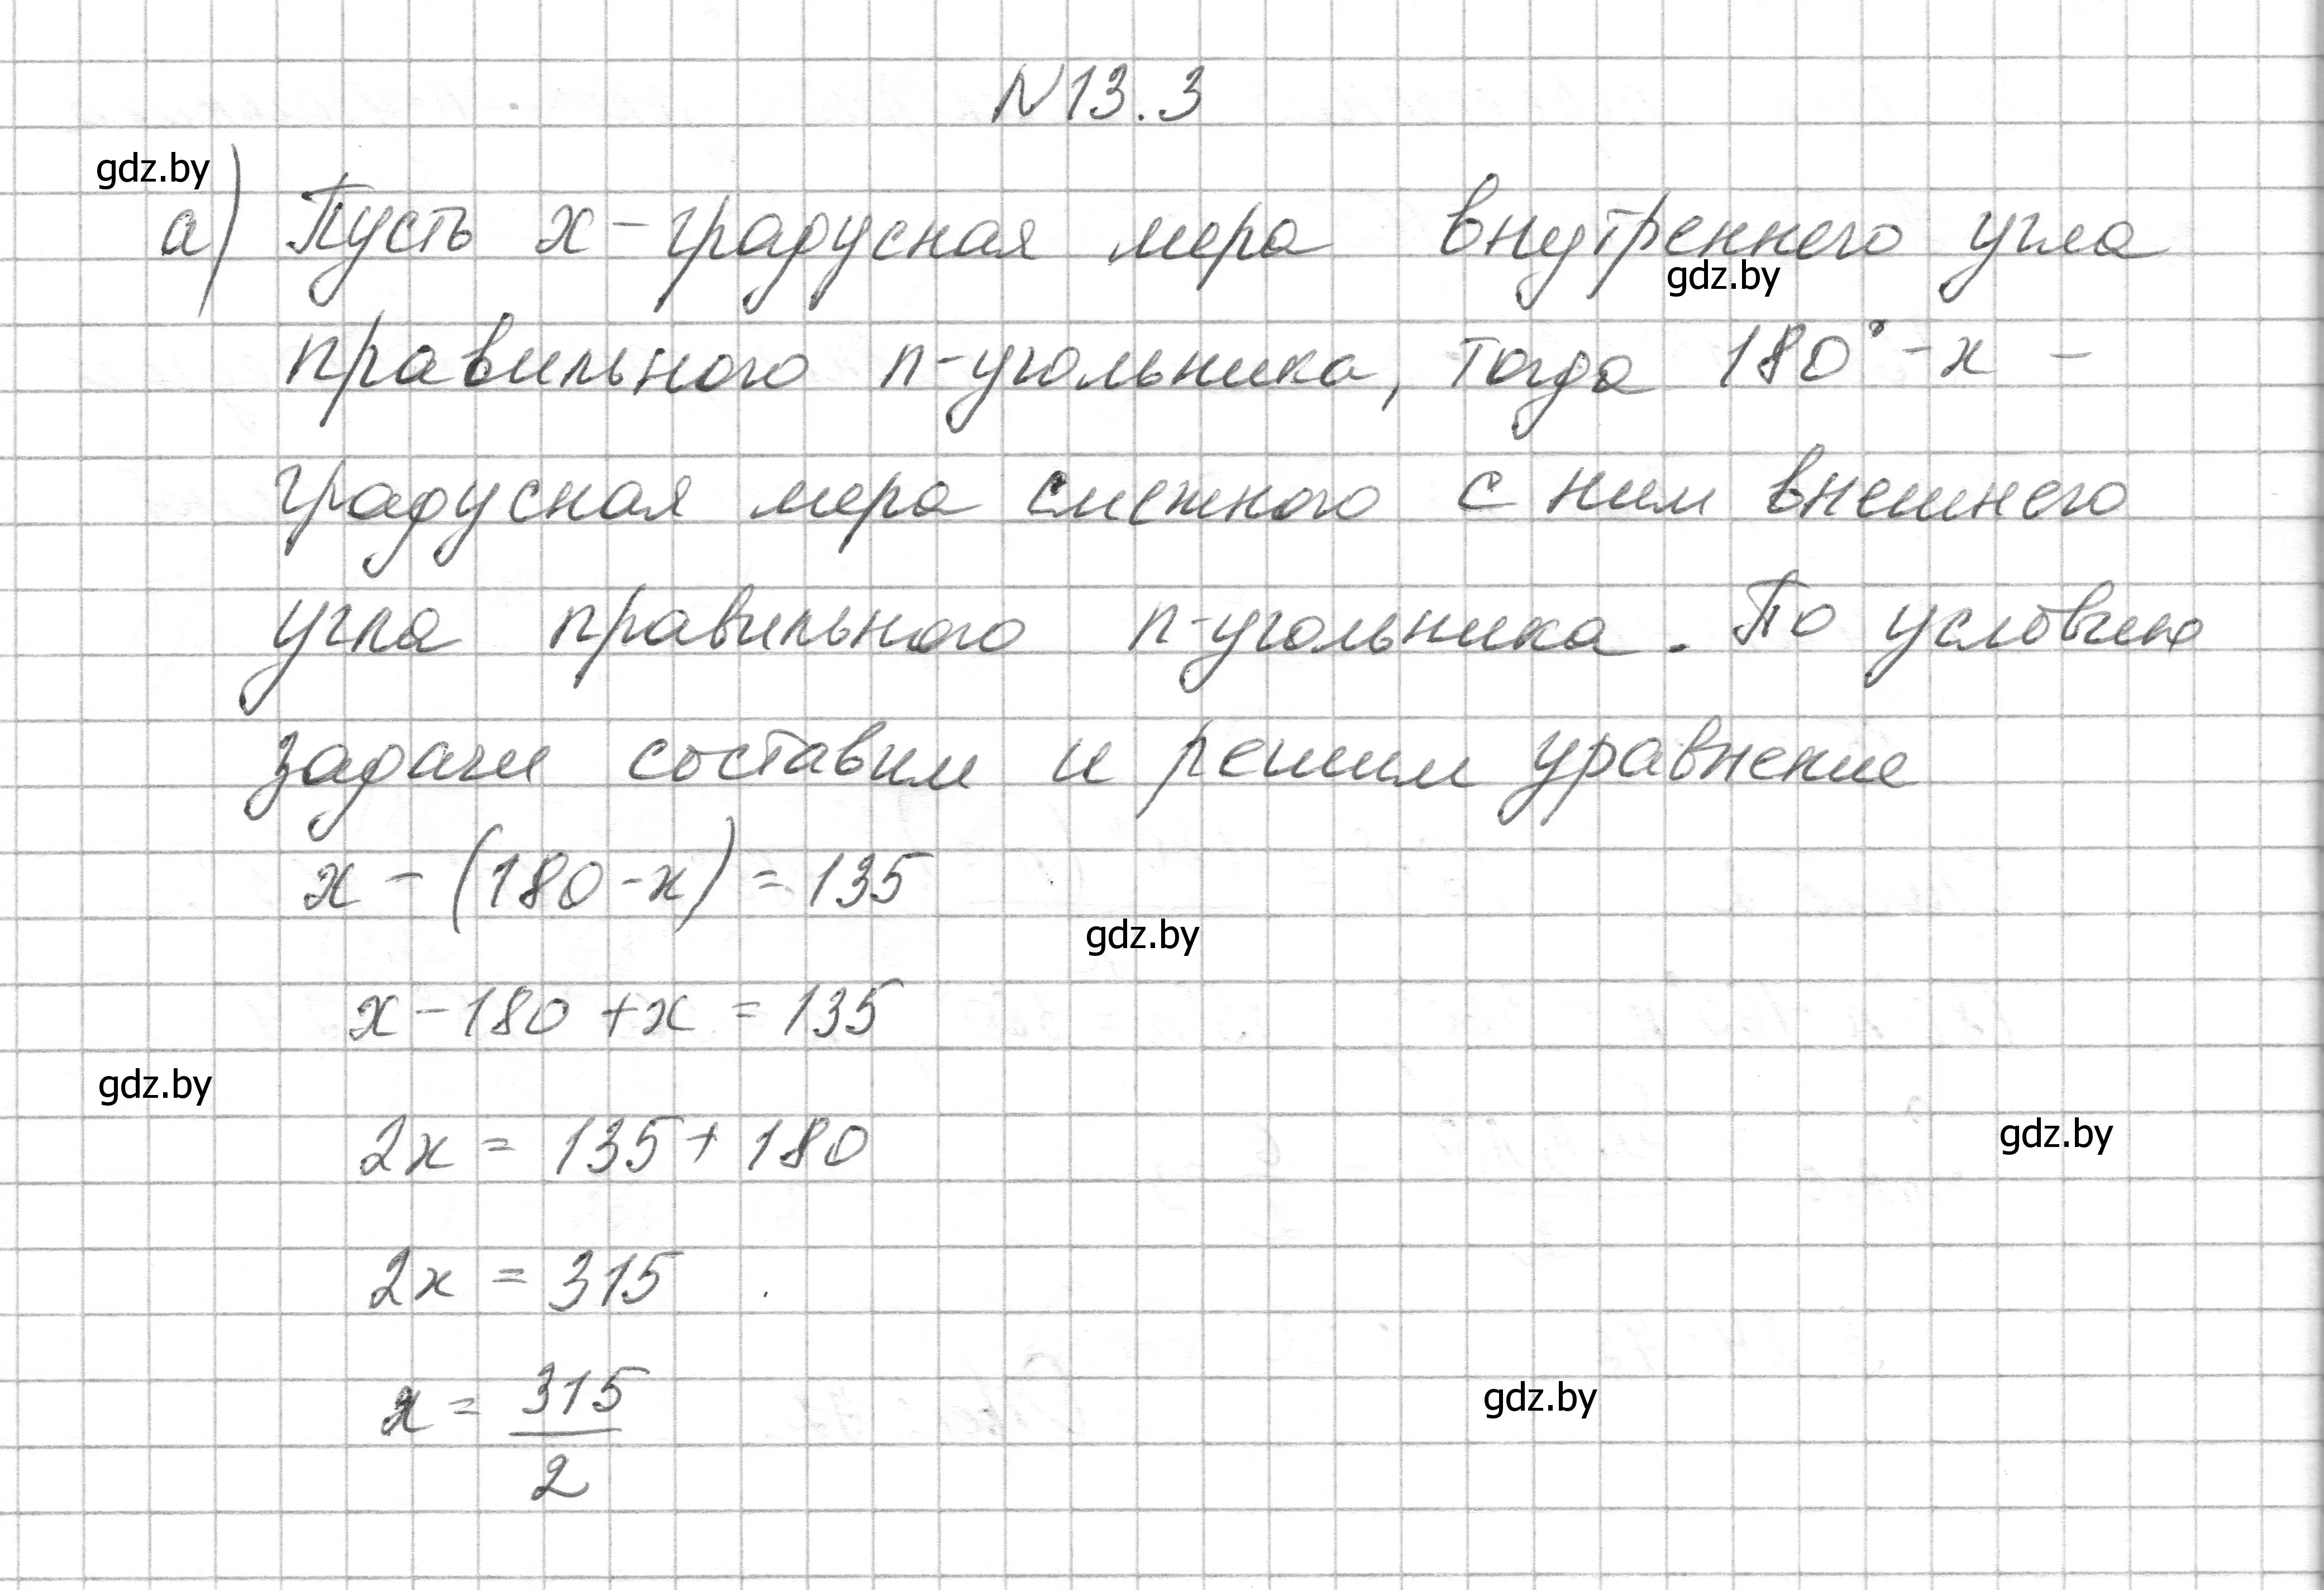 N13.3
gdz.by
а) Пусть x – градусная мера внутреннего угла
gdz.by
правильного n-угольника, тогда 180° - x –
градусная мера смежного с ним внешнего
угла правильного n-угольника. По условию
задачи составим и решим уравнение
x - (180 - x) = 135
gdz.by
x - 180 + x = 135
gdz.by
2x = 135 + 180
gdz.by
2x = 315
x = 315/2
gdz.by